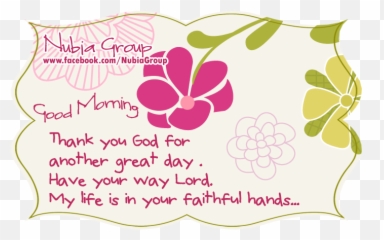 Nubia Group
www.facebook.com/NubiaGroup
Good Morning
Thank you God for
another great day .
Have your way Lord.
My life is in your faithful hands...